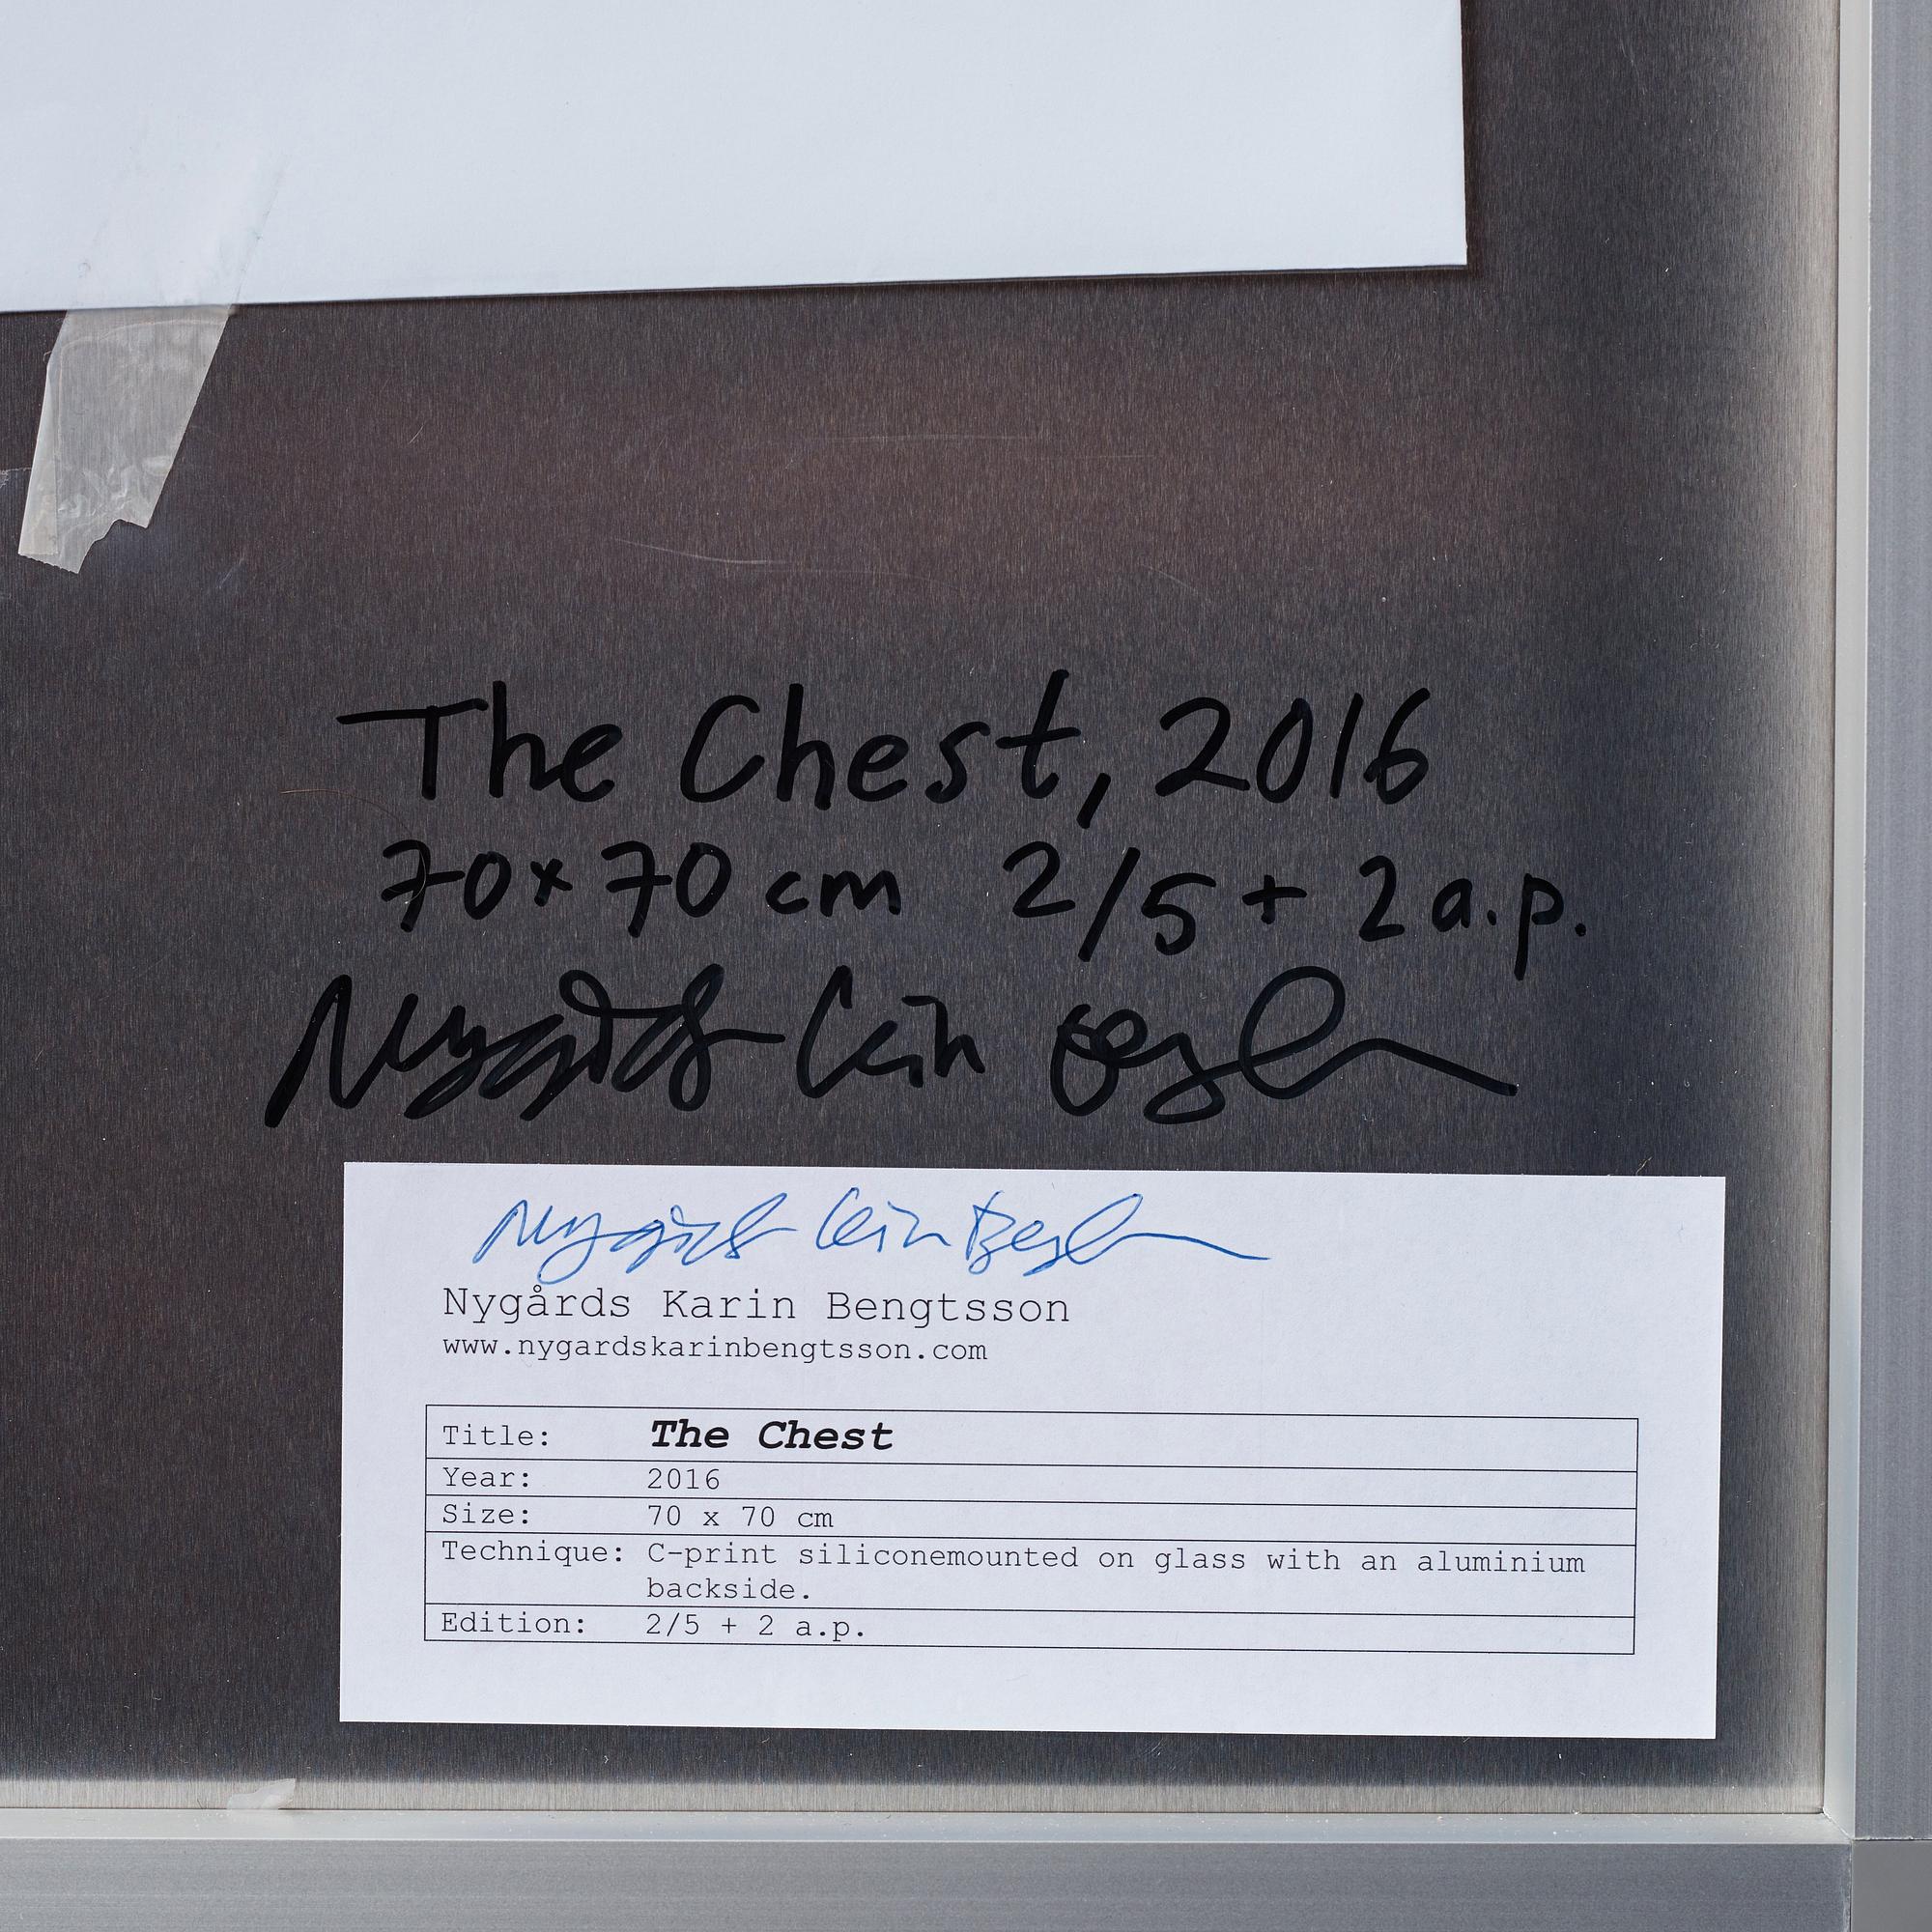 The Chest, 2016
70 x 70 cm 2/5 + 2 a.p.
Nygårds Karin Bengtsson
Nygårds Karin Bengtsson
Nygårds Karin Bengtsson
www.nygardskarinbengtsson.com
Title: The Chest
Year: 2016
Size: 70 x 70 cm
Technique: C-print siliconemounted on glass with an aluminium
backside.
Edition: 2/5 + 2 a.p.